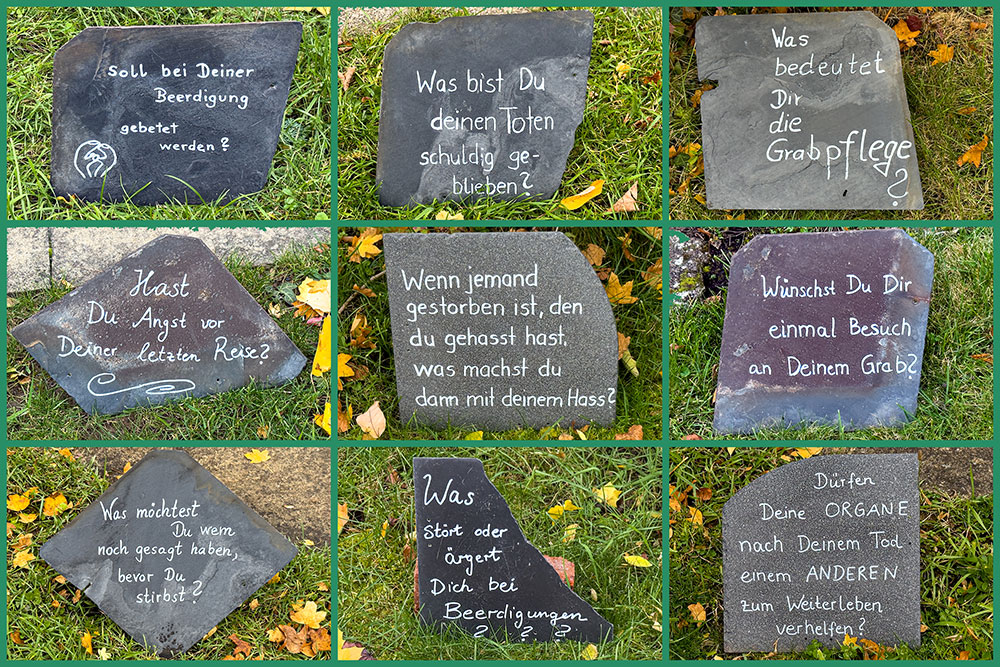 soll bei Deiner
Beerdigung
gebetet
werden?
Was bist Du
deinen Toten
schuldig ge-
blieben?
Was
bedeutet
Dir
die
Grabpflege
?
Hast
Du Angst vor
Deiner letzten Reise?
Wenn jemand
gestorben ist, den
du gehasst hast,
was machst du
dann mit deinem Hass?
Wünschst Du Dir
einmal Besuch
an Deinem Grab?
Was möchtest
Du wem
noch gesagt haben,
bevor Du
stirbst?
Was
stört oder
ärgert
Dich bei
Beerdigungen
? ? ?
Dürfen
Deine ORGANE
nach Deinem Tod
einem ANDEREN
zum Weiterleben
verhelfen?